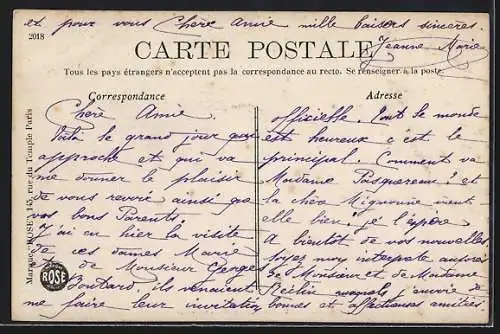 et pour vous Chère Amie mille baisers sincères.
Jeanne Marie
2018
CARTE POSTALE
Tous les pays étrangers n'acceptent pas la correspondance au recto. Se renseigner à la poste.
Correspondance
Chère Amie
Voilà le grand jour qui
approche et qui va
me donner le plaisir
de vous revoir ainsi que
vos bons Parents.
J'ai eu hier la visite
de ces dames Marie
et de Monsieur Georges
Boutard, ils venaient
me faire leur invitation
Adresse
officielle. Tout le monde
est heureux c'est le
principal. Comment va
Madame Pasquereau? et
la chère Mignonne vient
elle bien? je l'espère
A bientôt de vos nouvelles,
soyez mon interprète auprès
de Monsieur et de Madame
j'envoie de
bonnes et affectueuses amitiés
Marque ROSE 145, rue du Temple Paris
ROSE